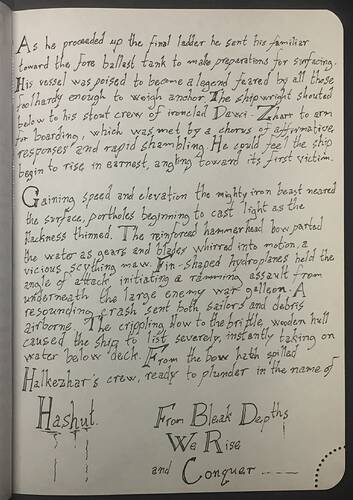 As he proceeded up the final ladder he sent his familiar
toward the fore ballast tank to make preparations for surfacing.
His vessel was poised to become a legend feared by all those
foolhardy enough to weigh anchor. The shipwright shouted
below to his stout crew of ironclad Dawi-Zharr to arm
for boarding, which was met by a chorus of affirmative
responses and rapid shambling. He could feel the ship
begin to rise in earnest, angling toward its first victim.
Gaining speed and elevation the mighty iron beast neared
the surface, portholes beginning to cast light as the
blackness thinned. The reinforced hammerhead bow parted
the water as gears and blades whirred into motion, a
vicious scything maw. Fin-shaped hydroplanes held the
angle of attack, initiating a ramming assault from
underneath the large enemy war galleon. A
resounding crash sent both sailors and debris
airborne. The crippling blow to the brittle, wooden hull
caused the ship to list severely, instantly taking on
water below deck. From the bow hatch spilled
Halkezhar's crew, ready to plunder in the name of
Hashut.
From Bleak Depths
We Rise
and Conquer ----